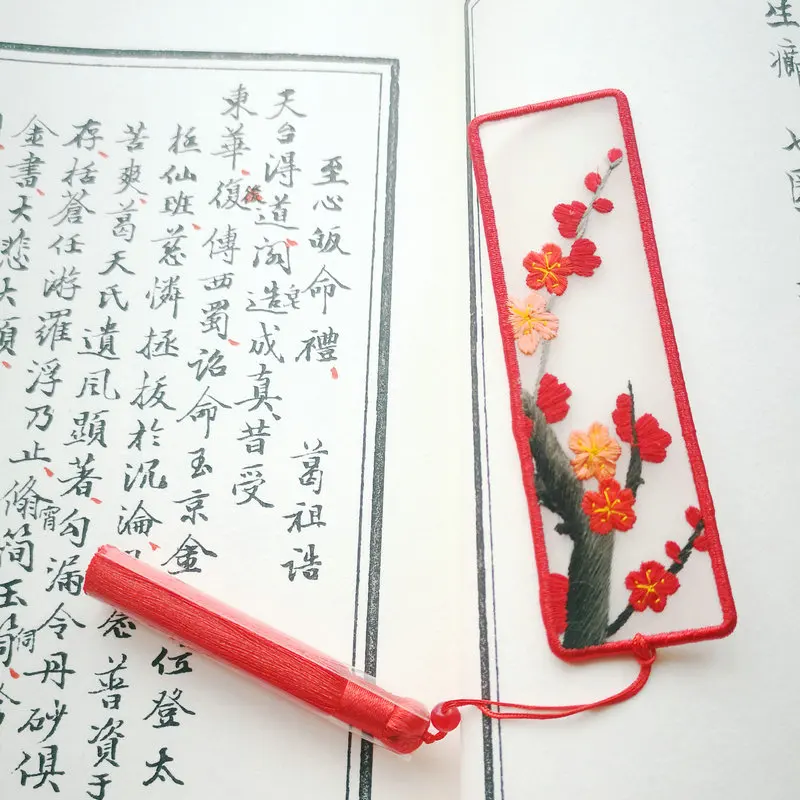 至心皈命禮、葛祖誥
天台得道閣皂造成真、昔受
東華、復傳西蜀、詔命玉京金位登太
挺仙班、慈憐拯拔於沉淪念普資于
苦爽、葛天氏遺風顯著、勾漏令丹砂俱
存、括蒼任游羅浮乃止、翛霄简玉笥
金書、大悲大願、